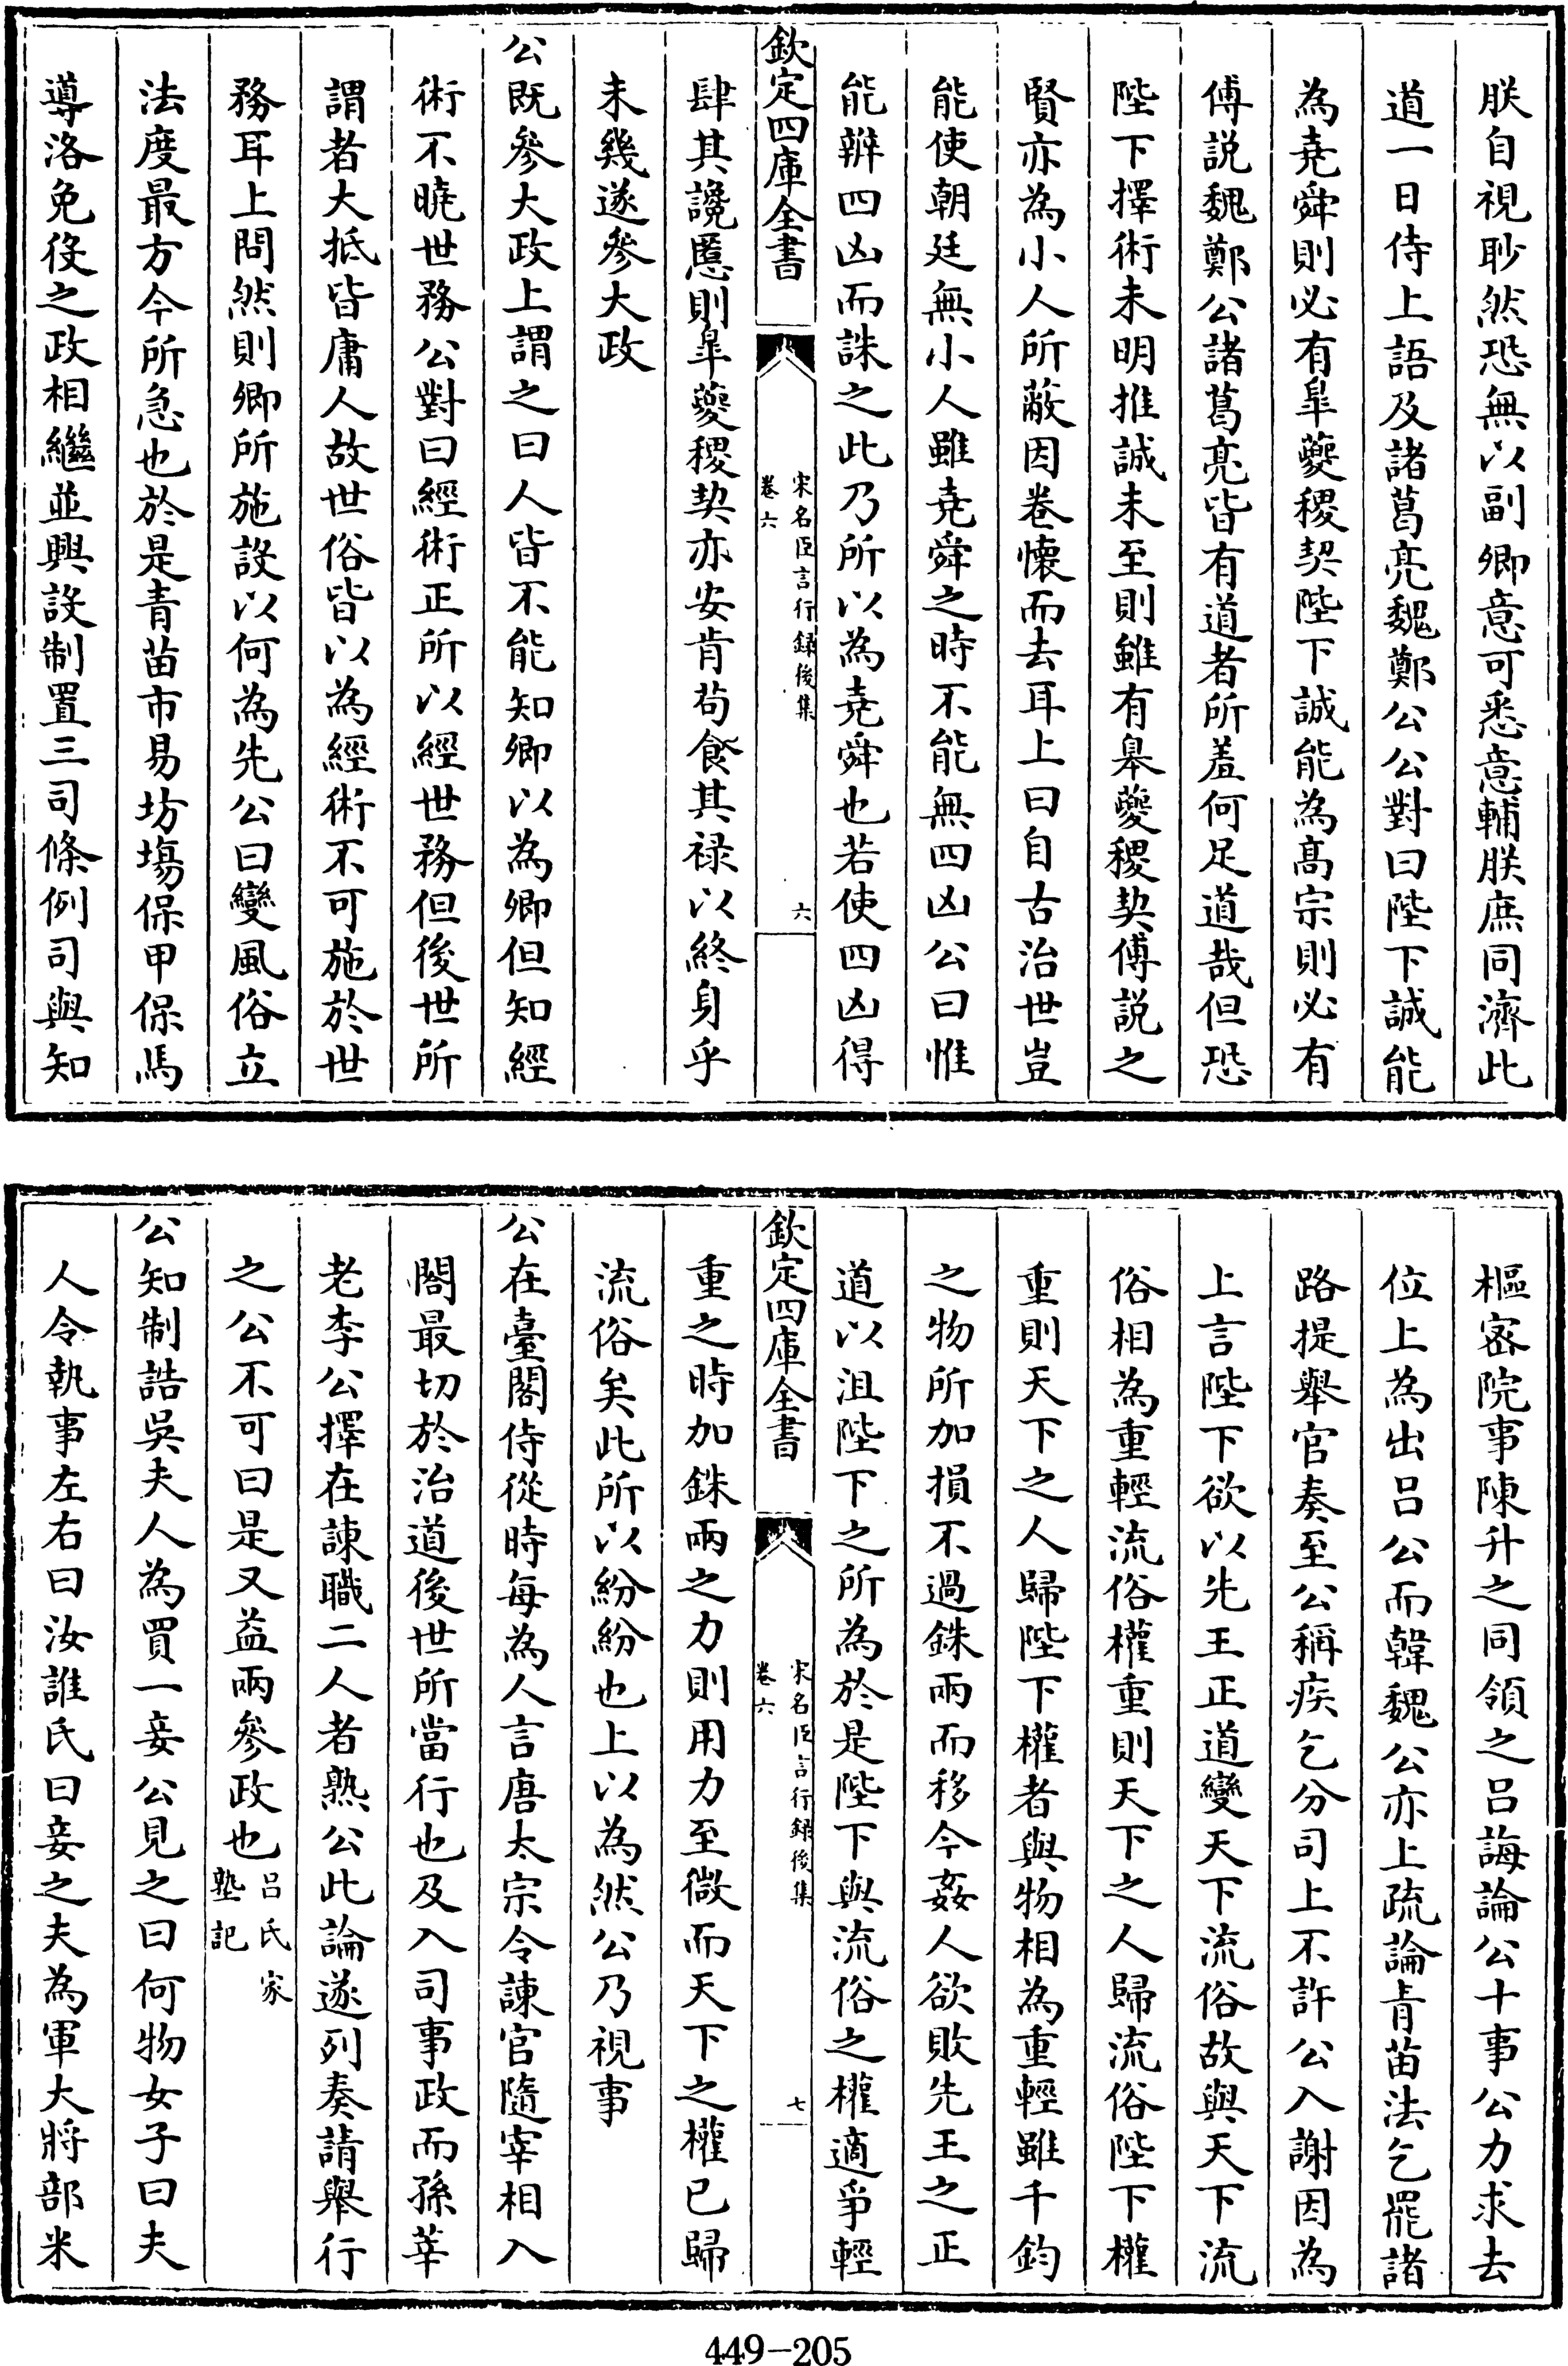 朕自視眇然恐無以副卿意可悉意輔朕庶同濟此
道一日侍上語及諸葛亮魏鄭公公對曰陛下誠能
為堯舜則必有臯夔稷契陛下誠能為髙宗則必有
傅説魏鄭公諸葛亮皆有道者所羞何足道哉但恐
陛下擇術未明推誠未至則雖有臯夔稷契傅説之
賢亦為小人所蔽因卷懐而去耳上曰自古治世豈
能使朝廷無小人雖堯舜之時不能無四凶公曰惟
能辨四凶而誅之此乃所以為堯舜也若使四凶得
欽定四庫全書
宋名臣言行録後集
卷六
六
肆其讒慝則臯夔稷契亦安肯茍食其禄以終身乎
未幾遂參大政
公既參大政上謂之曰人皆不能知卿以為卿但知經
術不曉世務公對曰經術正所以經世務但後世所
謂者大抵皆庸人故世俗皆以為經術不可施於世
務耳上問然則卿所施設以何為先公曰變風俗立
法度最方今所急也於是青苗市易坊塲保甲保馬
導洛免役之政相繼並興設制置三司條例司與知
樞宻院事陳升之同領之吕誨論公十事公力求去
位上為出吕公而韓魏公亦上疏論青苗法乞罷諸
路提舉官奏至公稱疾乞分司上不許公入謝因為
上言陛下欲以先王正道變天下流俗故與天下流
俗相為重輕流俗權重則天下之人歸流俗陛下權
重則天下之人歸陛下權者與物相為重輕雖千鈞
之物所加損不過銖兩而移今姦人欲敗先王之正
道以沮陛下之所為於是陛下與流俗之權適爭輕
欽定四庫全書
宋名臣言行録後集
卷六
七
重之時加銖兩之力則用力至微而天下之權已歸
流俗矣此所以紛紛也上以為然公乃視事
公在臺閣侍從時每為人言唐太宗令諫官隨宰相入
閤最切於治道後世所當行也及入司事政而孫莘
老李公擇在諫職二人者熟公此論遂列奏請舉行
之公不可曰是又益兩參政也吕氏家
塾記
公知制誥吳夫人為買一妾公見之曰何物女子曰夫
人令執事左右曰汝誰氏曰妾之夫為軍大將部米
449-205